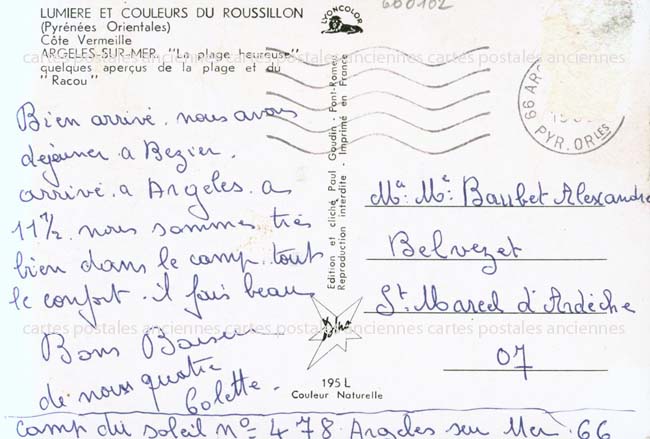 LUMIERE ET COULEURS DU ROUSSILLON
(Pyrénées Orientales)
Côte Vermeille
ARGELES-SUR-MER. "La plage heureuse"
quelques aperçus de la plage et du
"Racou"
LYONCOLOR
660102
66 ARG
PYR. ORles
cartes postales anciennes cartes postales anciennes cartes postales anciennes
Bien arrivé. nous avons
déjeuner a Bezier.
arrivé. a Argeles. a
11 H ½ nous sommes très
bien dans le camp. tout
le confort. il fais beau
Bons Baisers
de nous quatre
Colette.
camp du soleil nº= 478. Argeles sur Mer. 66
Edition et cliché Paul Gaudin - Font-Romeu
Reproduction interdite - Imprimé en France
195 L
Couleur Naturelle
Mr. Me. Baubet Alexandre
Belvezet
St. Marcel d'Ardèche
07
cartes postales anciennes cartes postales anciennes cartes postales anciennes